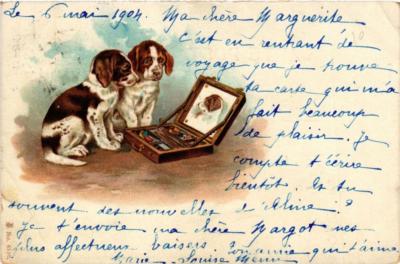 Le 6 mai 1904. Ma chère Marguerite
c'est en rentrant de
voyage que je trouve
ta carte qui m'a
fait beaucoup
de plaisir. Je
compte t'écrire
bientôt. As tu
souvent des nouvelles d'Aline?
Je t'envoie ma chère Margot mes
plus affectueux baisers. Ton amie qui t'aime
Marie-Louise